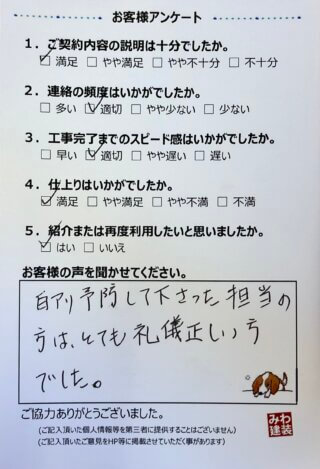 お客様アンケート
1．ご契約内容の説明は十分でしたか。
☑満足 □やや満足 □やや不十分 □不十分
2．連絡の頻度はいかがでしたか。
□多い ☑適切 □やや少ない □少ない
3．工事完了までのスピード感はいかがでしたか。
□早い ☑適切 □やや遅い □遅い
4．仕上りはいかがでしたか。
☑満足 □やや満足 □やや不満 □不満
5．紹介または再度利用したいと思いましたか。
☑はい □いいえ
お客様の声を聞かせてください。
白アリ予防して下さった担当の
方は、とても礼儀正しい方
でした。
ご協力ありがとうございました。
（ご記入頂いた個人情報等を第三者に提供することはございません）
（ご記入頂いたご意見をHP等に掲載させていただく事があります）
みわ
建装